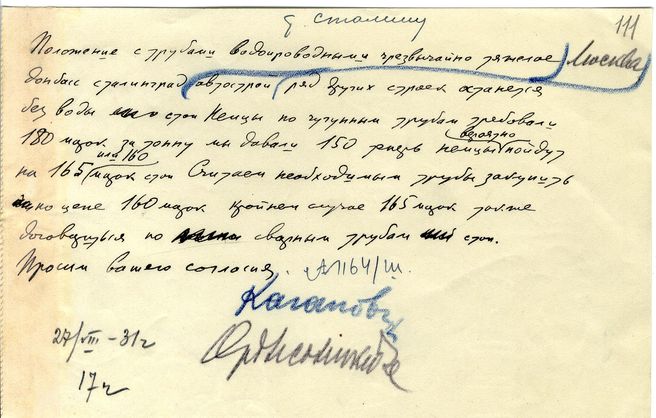 т. Сталину
111
Положение с трубами водопроводными чрезвычайно тяжелое Москва
донбасс сталинград автострой ряд других строек останется
без воды стоп Немцы по чугунным трубам требовали
180 марок за тонну мы давали 150 теперь немцы вероятно пойдут
на 165 или 160 марок стоп Считаем необходимым трубы закупить
по цене 160 марок крайнем случае 165 марок также
договориться по сварным трубам стоп.
Просим вашего согласия.
Каганович
27/VIII-31г Орджоникидзе
17ч